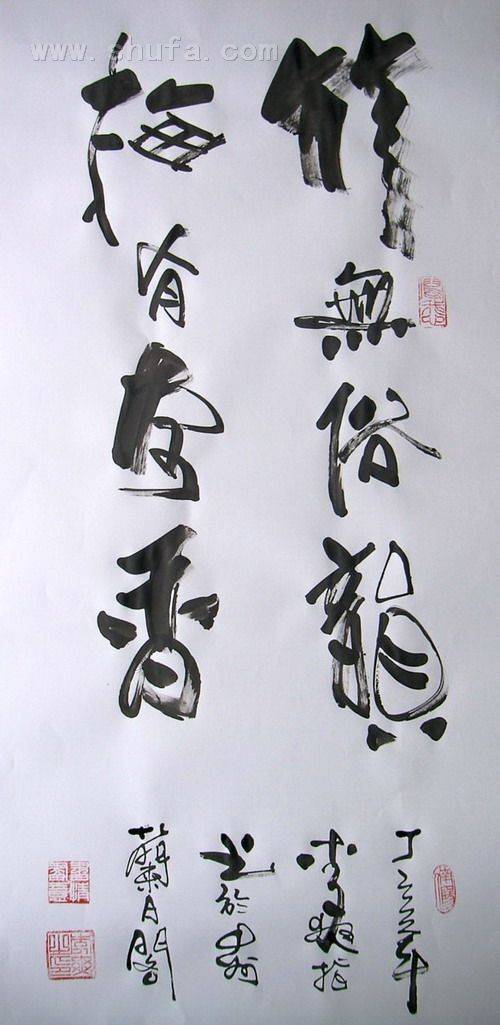 www.shufa.com
竹無俗韻
梅有奇香
丁亥年
李 指
书於中州
蘭月閣